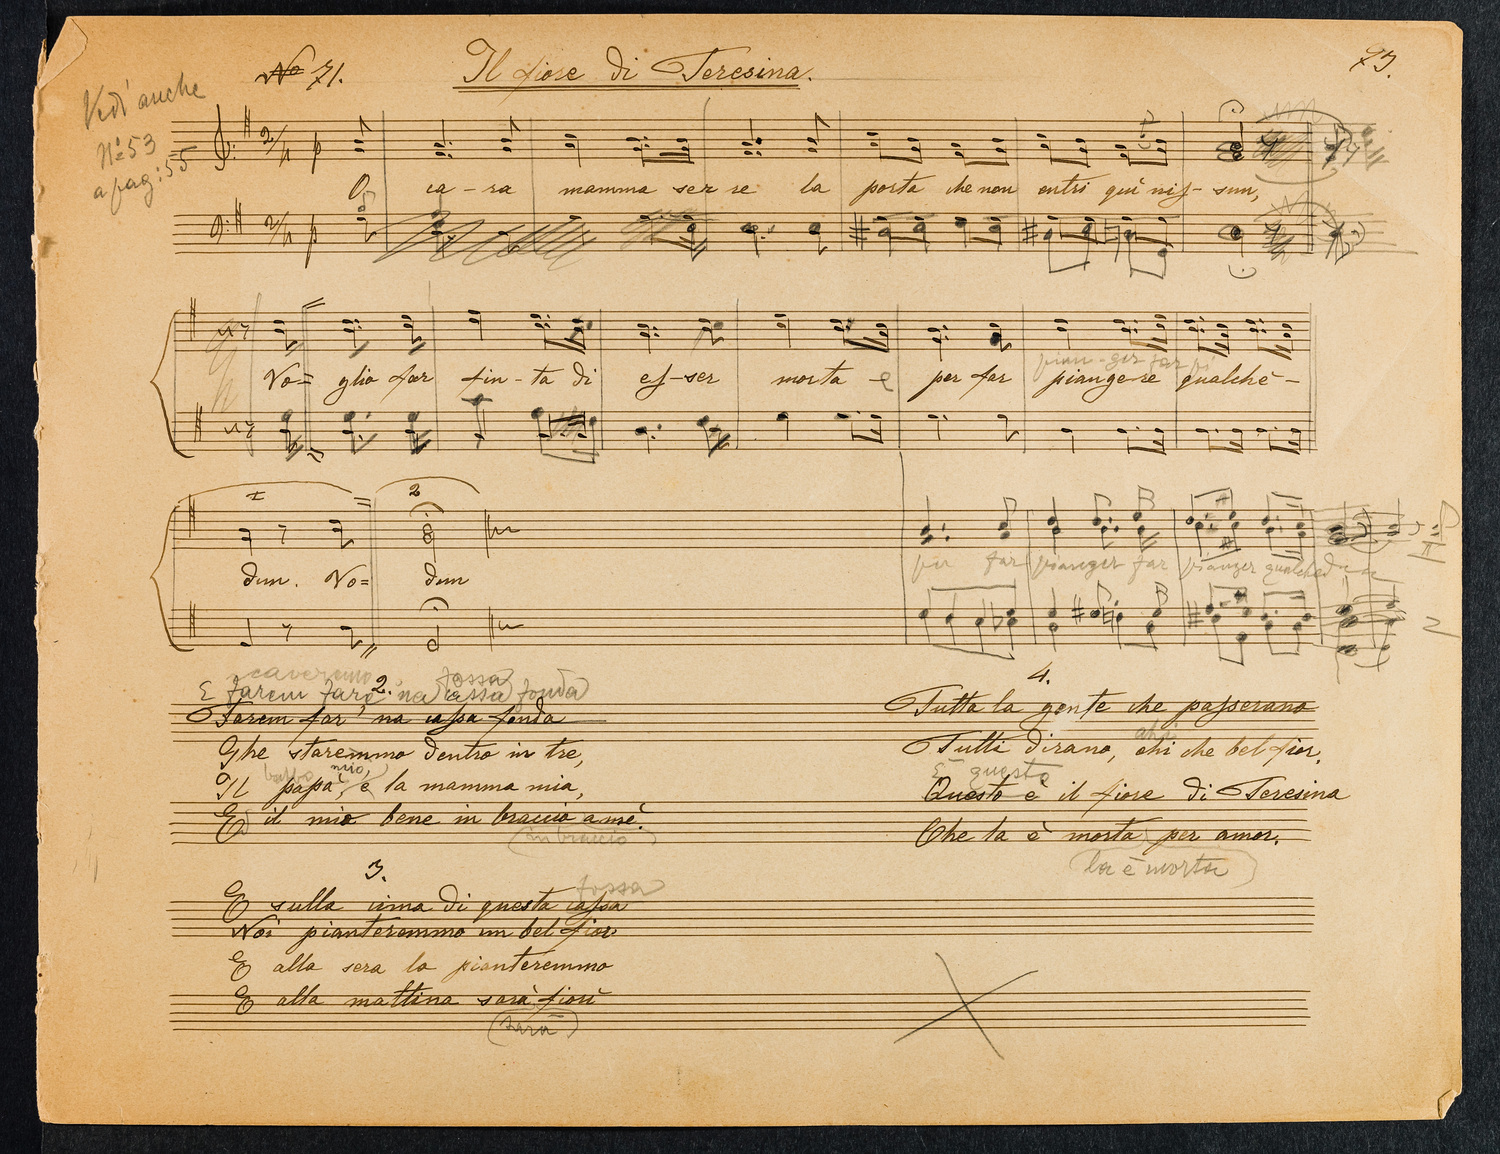 No 71.
Il fiore di Teresina.
73.
Vedi anche
No 53
a pag: 55
O, ca - ra mamma ser re la porta che non entri quì nis - sun,
pian - ger far
Vo= glio far fin - ta di es - ser morta e per far piangere qualche -
1 2
dun. Vo= dun
per far pianger far pianger qualchedun
caveremo fossa
E farem fare 'na cassa fonda
2.
Farem far' 'na cassa fonda
Ghe staremmo dentro in tre,
babbo mio,
Il papà, e la mamma mia,
E il mio bene in braccio a mè.
in braccio
3.
fossa
E sulla cima di questa cassa
Noi pianteremmo un bel fior
E alla sera lo pianteremmo
E alla mattina sarà fiorì
sarà
4.
Tutta la gente che passerano
ahi
Tutti dirano, ohi che bel fior,
E questo
Questo è il fiore di Teresina
Che la è morta per amor.
la è morta